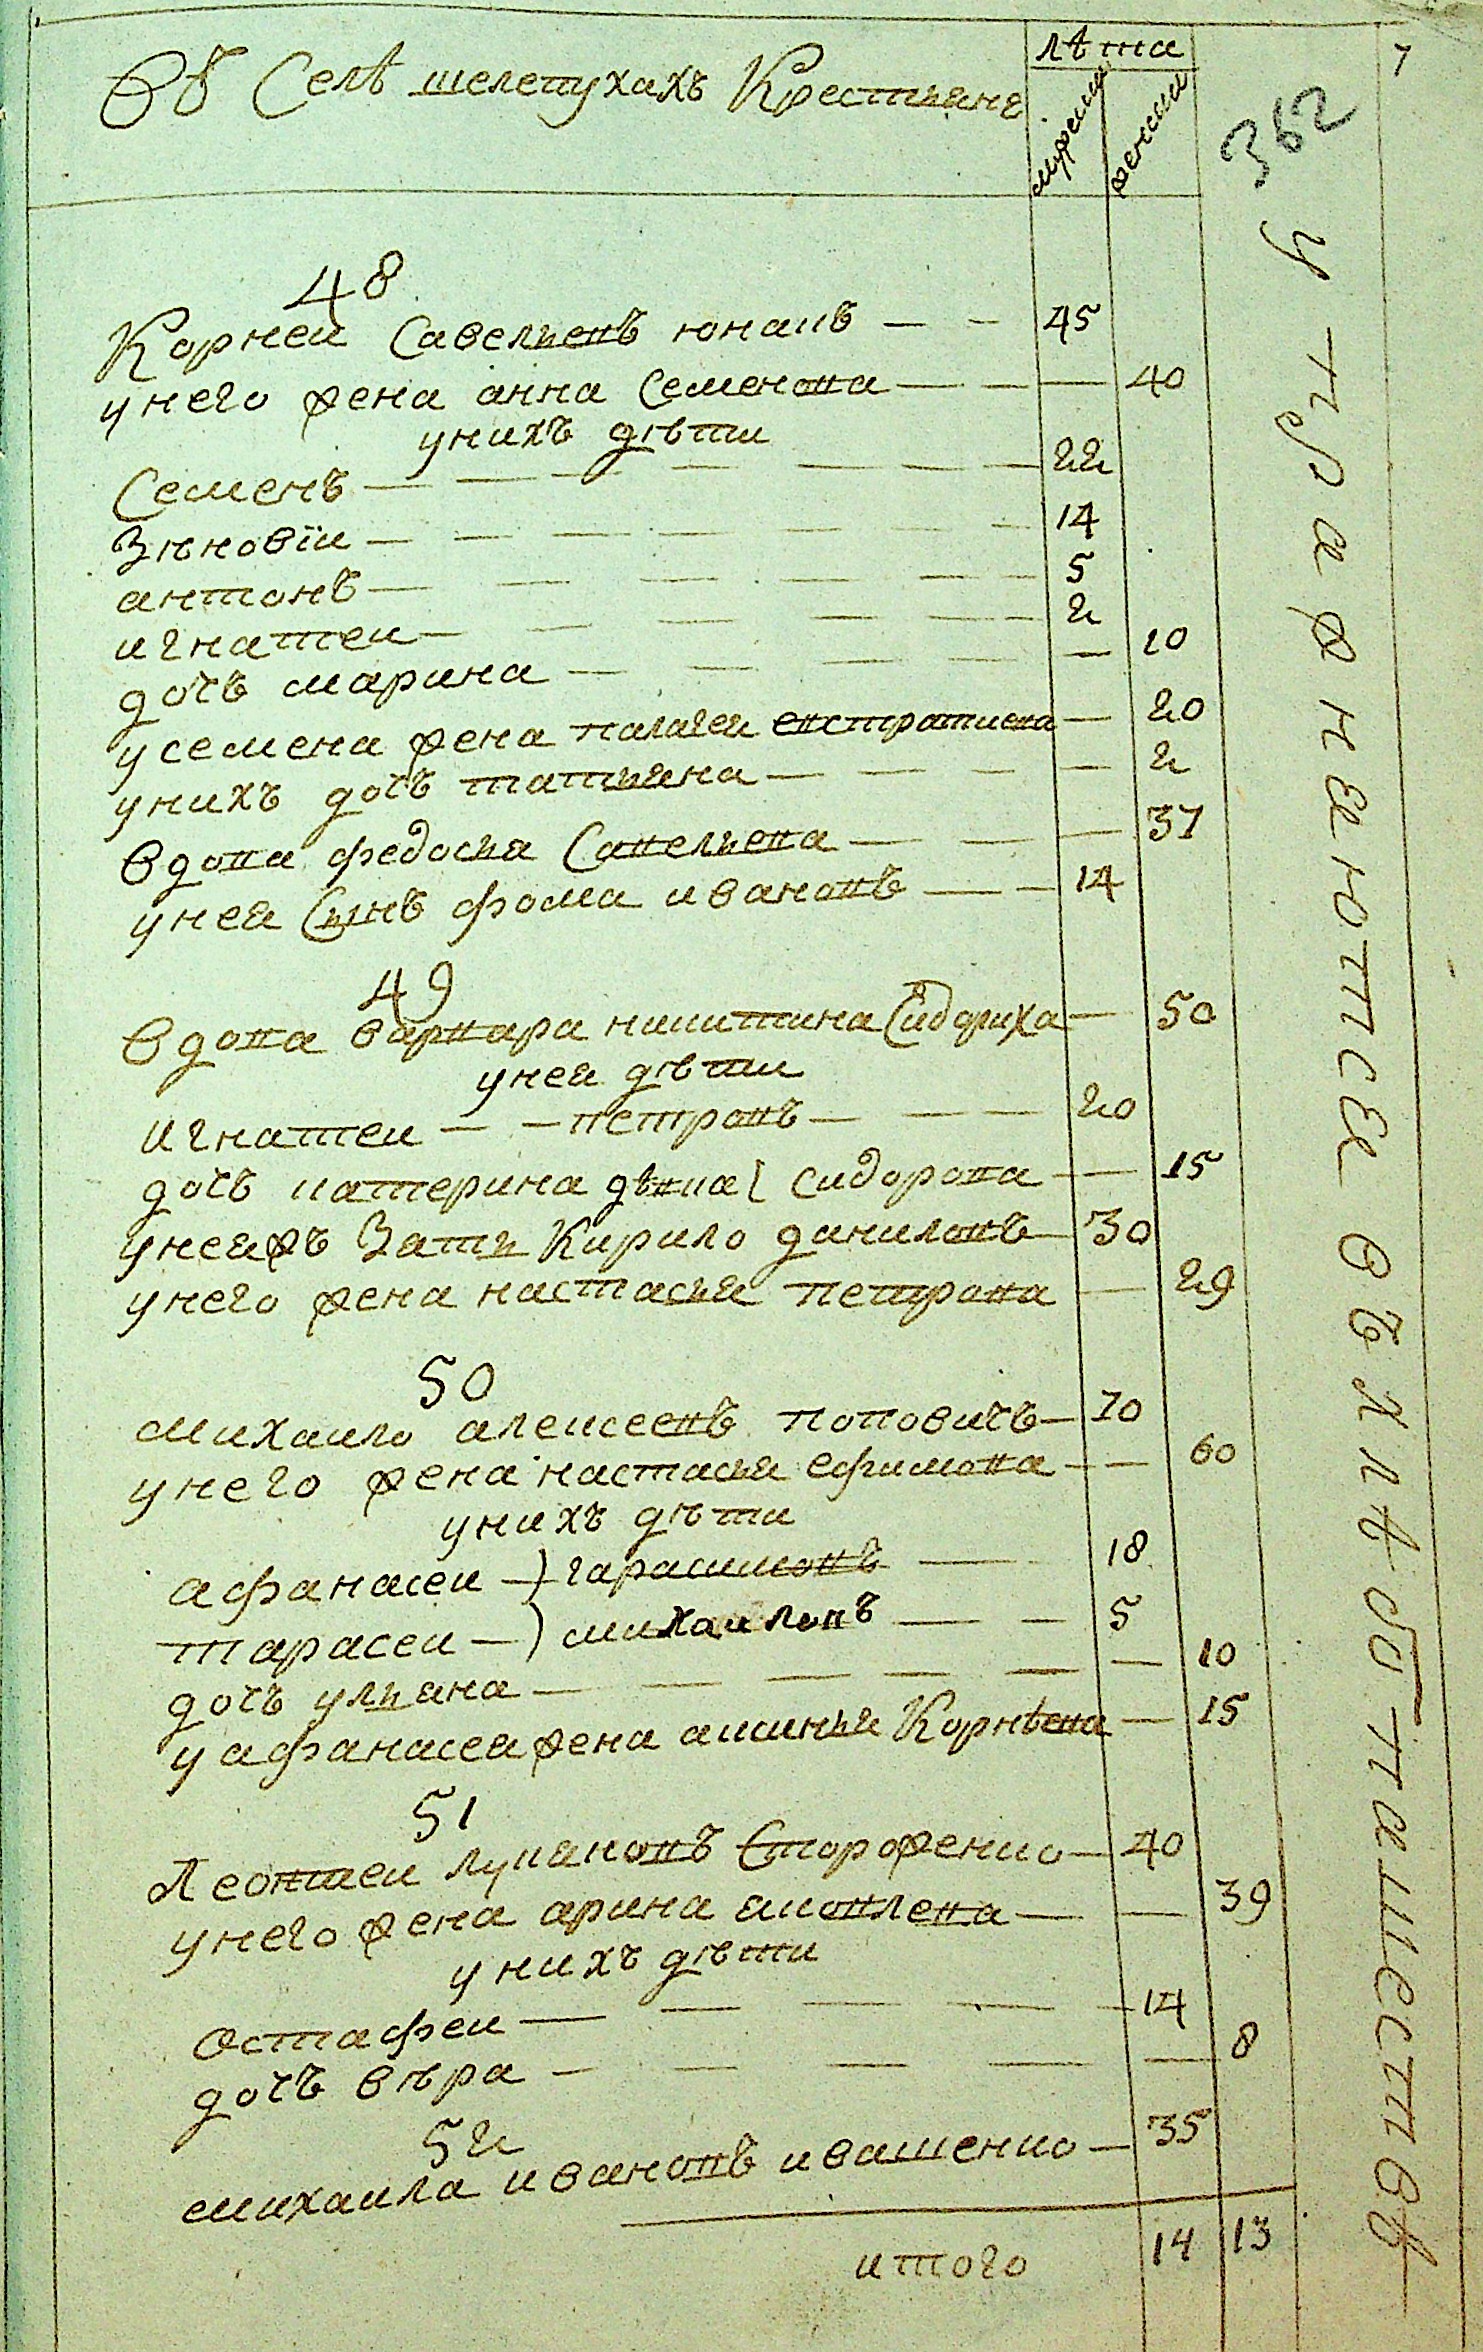 Въ Селѣ шелепухахъ Крестьяне
лѣта
мужеска
женска
7
362
упражняютсѧ въ хлѣбопашествѣ
48
Корней Савельевъ юнакъ — — 45
унего жена анна Семенова — — — 40
унихъ дѣти
Семенъ — — — 22
Зѣновїй — — — 14
антонъ — — — 5
игнатей — — — 2
дочъ марина — — — 10
усемена жена палагея евстратиева — 20
унихъ дочъ татьяна — — — 2
вдова федосья Савельева — — — 37
унея Сынъ фома ивановъ — — 14
49
вдова варвара никитина Сидориха — 50
унея дѣти
игнатей — — петровъ — — — 20
дочъ катерина дѣвка Сидорова — 15
унеяжъ Зять Кирило даниловъ — 30
унего жена настасья петрова — 29
50
михайло алексеевъ поповичъ — 70
унего жена настасья ефимова — — 60
унихъ дѣти
афанасей — ) гарасимовъ — — 18
тарасей — ) михайловъ — — 5
дочъ ульяна — — — 10
уафанасея жена аксинья Корнѣева — 15
51
Леонтей лукяновъ Сторженко — 40
унего жена арина яковлева — — 39
унихъ дѣти
Остафей — — — 14
дочъ вѣра — — — 8
52
михаила ивановъ ивашенко — 35
итого 14 13